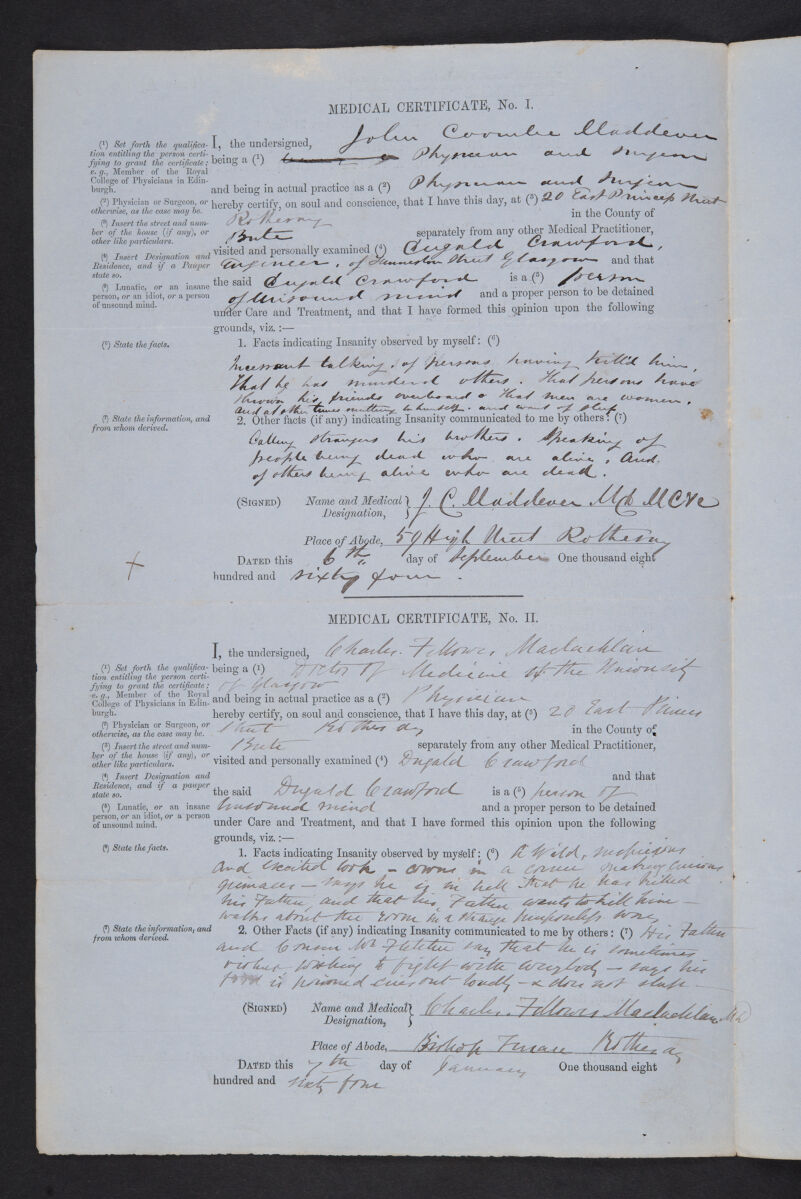 MEDICAL CERTIFICATE, No. I.
(1) Set forth the qualifica-
tion entitling the person certi-
fying to grant the certificate;
e.g., Member of the Royal
College of Physicians in Edin-
burgh.
(2) Physician or Surgeon, or
otherwise, as the case may be.
(3) Insert the street and num-
ber of the house (if any), or
other like particulars.
(4) Insert Designation and
Residence, and if a Pauper
state so.
(5) Lunatic, or an insane
person, or an idiot, or a person
of unsound mind.
(6) State the facts.
(7) State the information, and
from whom derived.
I, the undersigned, John Coombe Maddever
being a (1) Physician and Surgeon
and being in actual practice as a (2) Physician and Surgeon
hereby certify, on soul and conscience, that I have this day, at (3) 20 East Princes Street
Rothesay in the County of
Bute separately from any other Medical Practitioner,
visited and personally examined (4) Dugald Crawford,
Engineer, of Street Glasgow and that
the said Dugald Crawford is a (5) person
of Unsound mind and a proper person to be detained
under Care and Treatment, and that I have formed this opinion upon the following
grounds, viz. :—
1. Facts indicating Insanity observed by myself: (6)
Incessant talking, of persons having kill'd him,
That he has murdered others. That persons have
thrown his friends overboard & that men are women.
and at other times muttering to himself. and want of sleep
2. Other facts (if any) indicating Insanity communicated to me by others: (7)
Calling strangers his brothers. Speaking of
people being dead who are alive, And
of others being alive who are dead.
(SIGNED) Name and Medical Designation, J. C. Maddever MD
Place of Abode, 59 High Street Rothesay
DATED this 6th day of September One thousand eight
hundred and sixty four.
MEDICAL CERTIFICATE, No. II.
(1) Set forth the qualifica-
tion entitling the person certi-
fying to grant the certificate;
e.g., Member of the Royal
College of Physicians in Edin-
burgh.
(2) Physician or Surgeon, or
otherwise, as the case may be.
(3) Insert the street and num-
ber of the house (if any), or
other like particulars.
(4) Insert Designation and
Residence, and if a pauper
state so.
(5) Lunatic, or an insane
person, or an idiot, or a person
of unsound mind.
(6) State the facts.
(7) State the information, and
from whom derived.
I, the undersigned, Charles Fellowes Maclachlan
being a (1) Doctor of Medicine of the University
of Glasgow
and being in actual practice as a (2) Physician
hereby certify, on soul and conscience, that I have this day, at (3) 20 East Princes
Street Rothesay in the County of
Bute separately from any other Medical Practitioner,
visited and personally examined (4) Dugald Crawford
and that
the said Dugald Crawford is a (5) person of
unsound mind and a proper person to be detained
under Care and Treatment, and that I have formed this opinion upon the following
grounds, viz. :—
1. Facts indicating Insanity observed by myself; (6) A Wild, suspicious
and excited look – in a corner making curious
grimaces – says he is in hell that he has killed
his Father and that his Father wants to kill him –
walks about the room in a strange way
2. Other Facts (if any) indicating Insanity communicated to me by others: (7) His Father
and Cousin Mr Fletcher say that he is sometimes
violent wishing to fight with everybody – says his
food is poisoned cries out loudly – & does not sleep –
(SIGNED) Name and Medical Designation, Charles Fellowes Maclachlan MD
Place of Abode, Bishop Terrace Rothesay
DATED this 7th day of January One thousand eight
hundred and sixty four